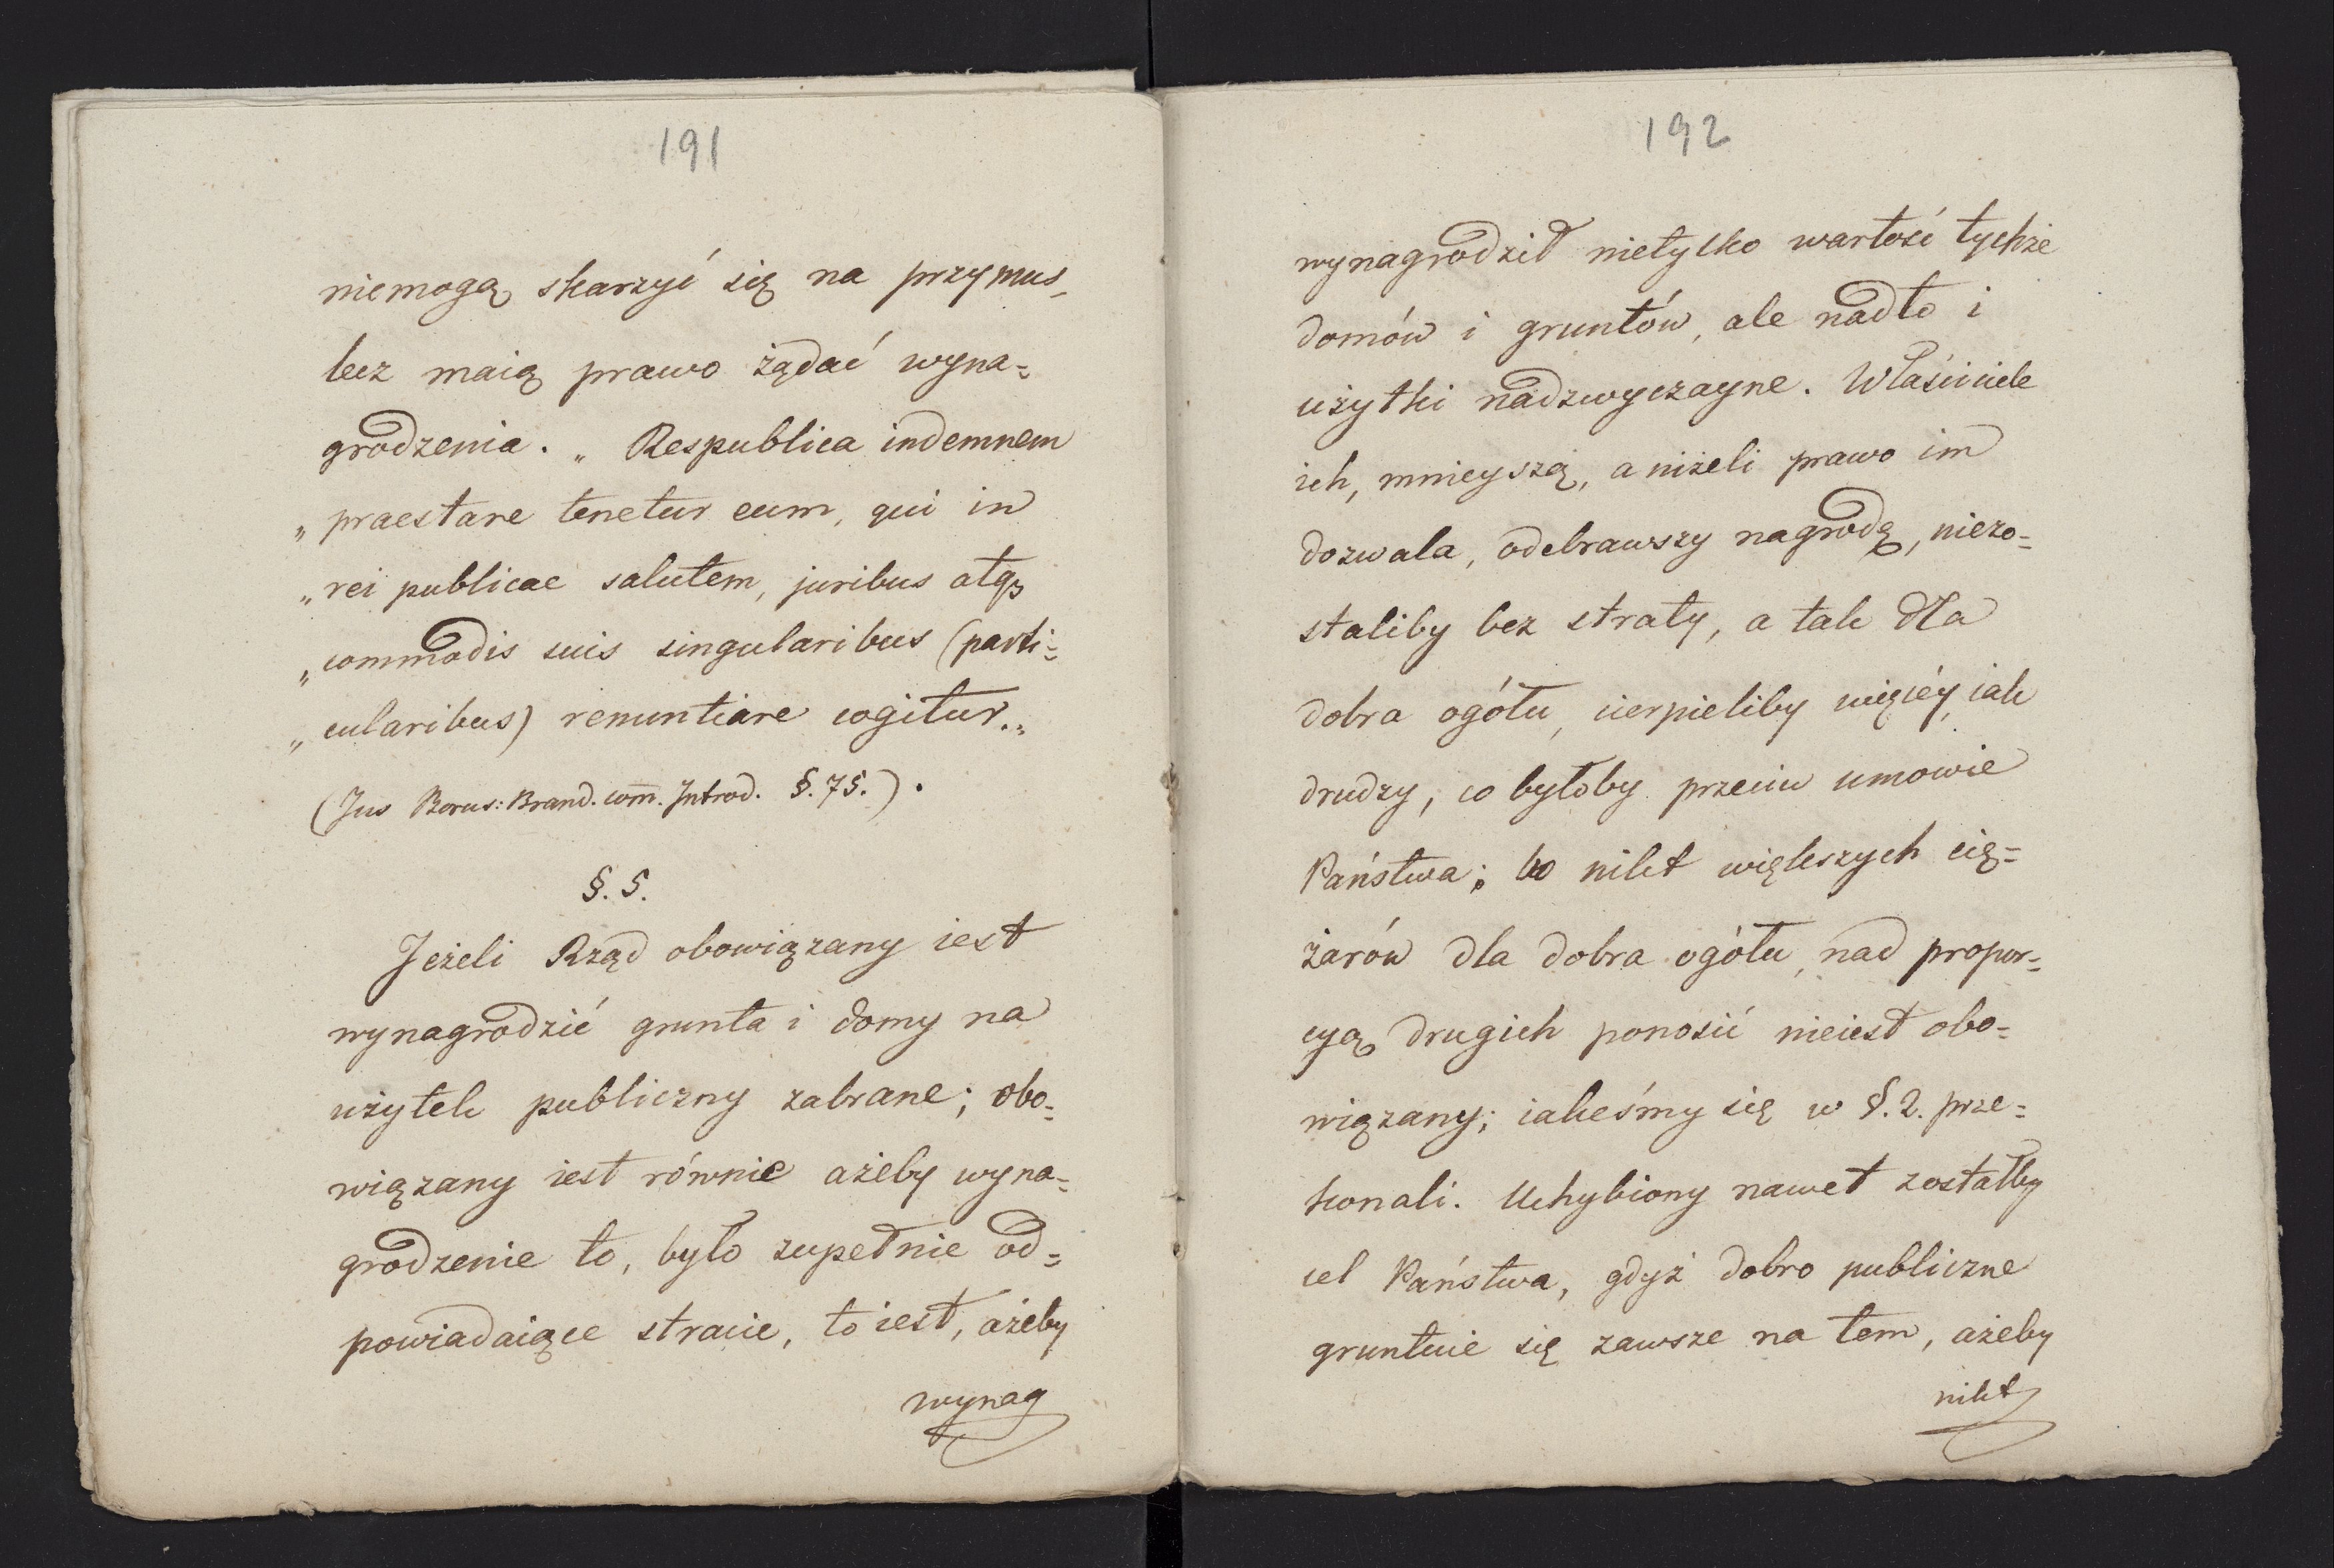 191
niemogą skarzyć się na przymus,
lecz maią prawo żądać wyna=
grodzenia. „ Respublica indemnem
„ praestare tenetur eum, qui in
„ rei publicae salutem, juribus atqз
„ commodis suis singularibus (parti=
„ cularibus) renuntiare cogitur.„
(Jus Borus: Brand. com̄. Introd. §. 75.).
§. 5.
Jeżeli Rząd obowiązany iest
wynagrodzić grunta i domy na
użytek publiczny zabrane; obo=
wiązany iest równie ażeby wyna=
grodzenie to, było zupełnie od=
powiadaiące stracie, to iest, ażeby
wynag
192
wynagrodził nietylko wartość tychże
domów i gruntów, ale nadto i
użytki nadzwyczayne. Właściciele
ich, mnieyszą, aniżeli prawo im
dozwala, odebrawszy nagrodę, niezo=
staliby bez straty, a tak dla
dobra ogółu, cierpieliby więcéy, iak
drudzy, co byłoby przeciw umowie
Państwa; bo nikt większych cię=
żarów dla dobra ogółu, nad propor=
cyą drugich ponosić nieiest obo=
wiązany; iakeśmy się w §. 2. prze=
konali. Uchybiony nawet zostałby
cel Państwa, gdyż dobro publiczne
gruntuie się zawsze na tem, ażeby
nikt